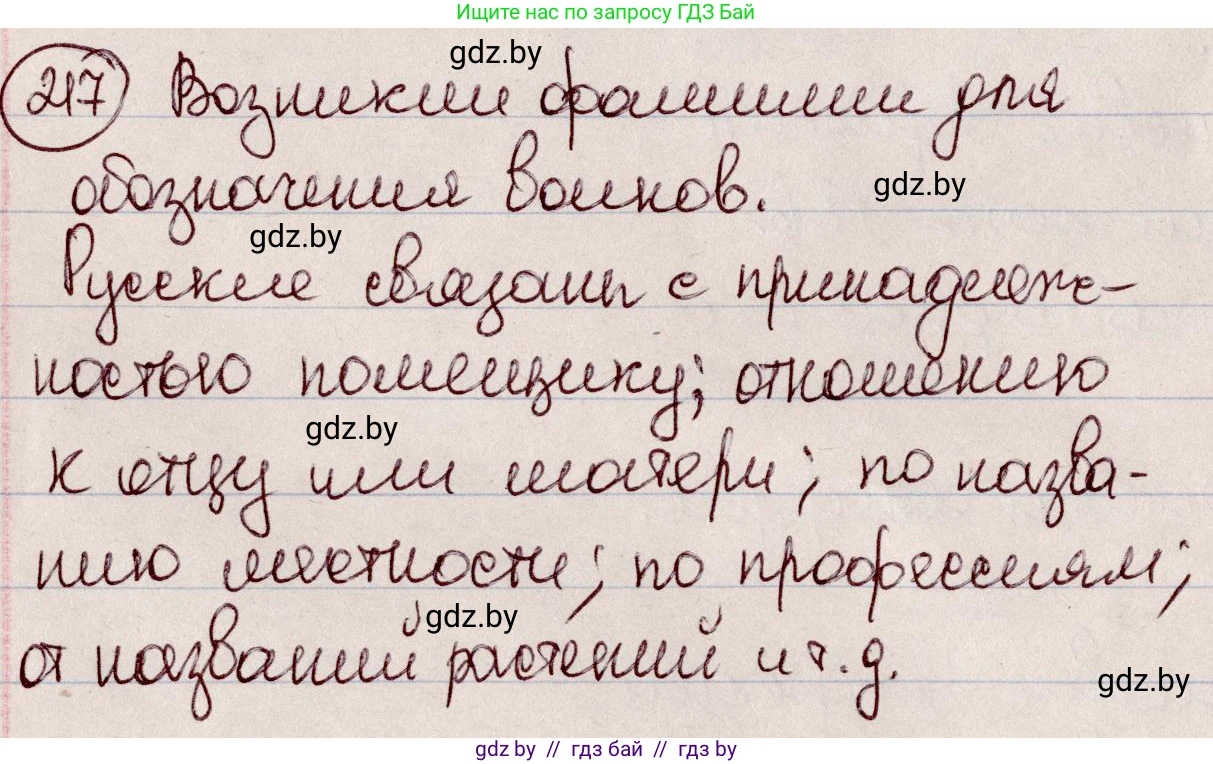 Ищите нас по запросу ГДЗ Бай
gdz.by
217 Возникли фамилии для
обозначения воинов.
gdz.by
gdz.by
Русские связаны с принадлеж-
ностью помещику; отношению
gdz.by
к отцу или матери; по назва-
нию местности; по профессиям;
gdz.by
от названий растений и т. д.
gdz.by
gdz.by // гдз бай // гдз by